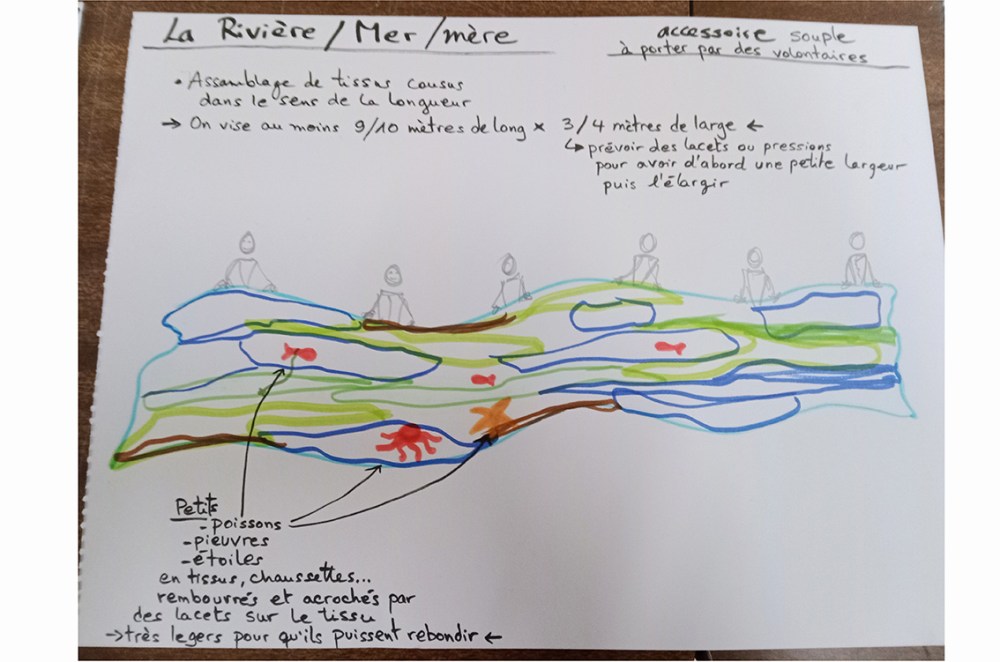 La Rivière / Mer / mère
accessoire souple
à porter par des volontaires
• Assamblage de tissus cousus
dans le sens de la longueur
→ On vise au moins 9/10 mètres de long × 3/4 mètres de large ←
↳ prévoir des lacets ou pressions
pour avoir d'abord une petite largeur
puis l'élargir
Petits
- poissons
- pieuvres
- étoiles
en tissus, chaussettes...
rembourrés et acrochés par
des lacets sur le tissu
→ très legers pour qu'ils puissent rebondir ←